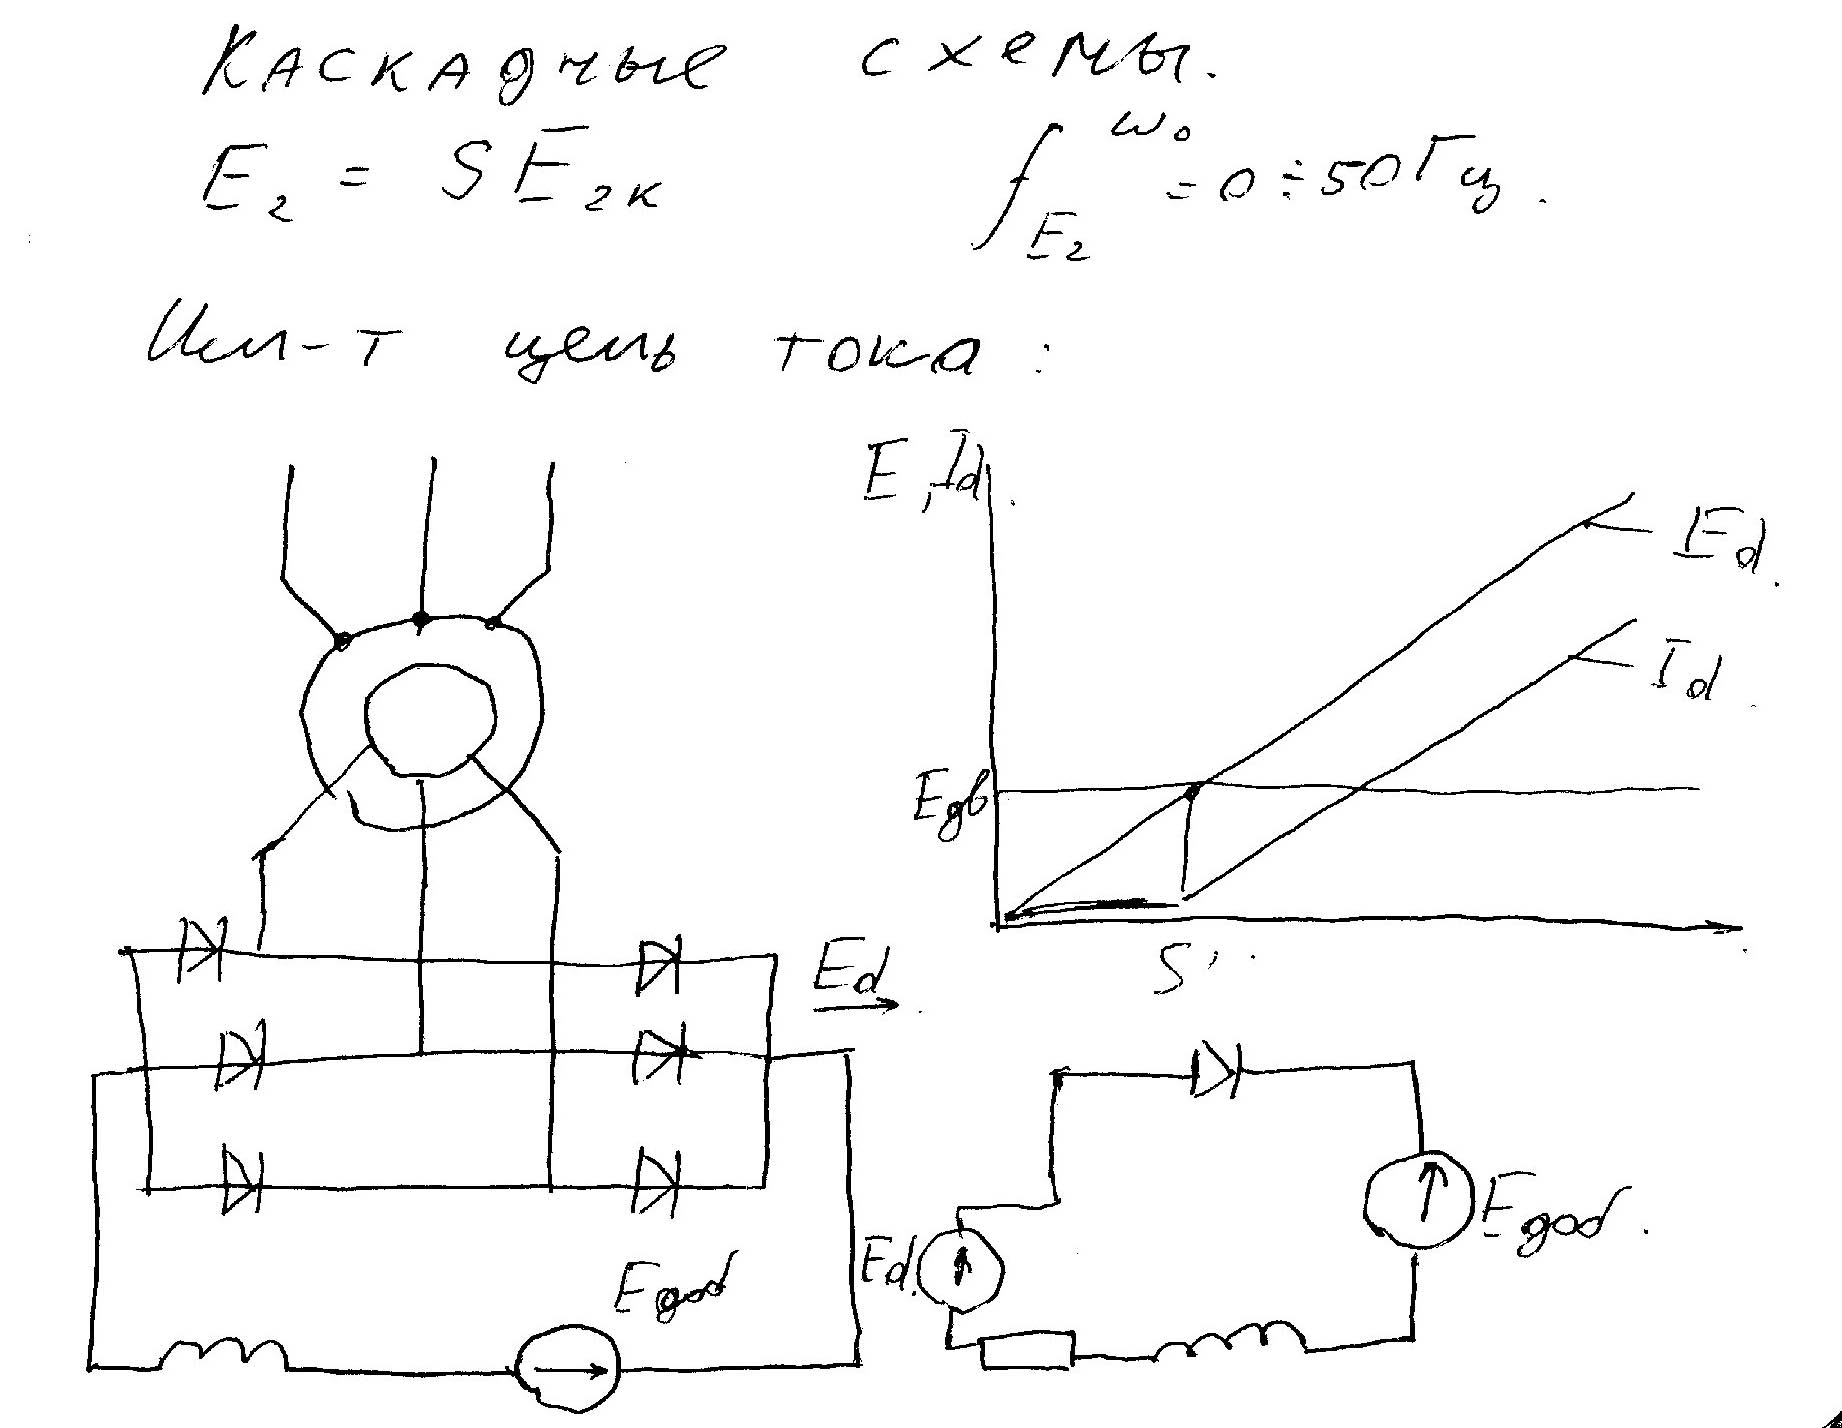 Каскадные схемы.
E₂ = S E₂к
f E₂ ω₀ = 0 ÷ 50 Гц.
Исп-т цепь тока:
E, Id
Ed
Id
Eдв
S'
Ed
Eдоб
Ed
Eдоб.